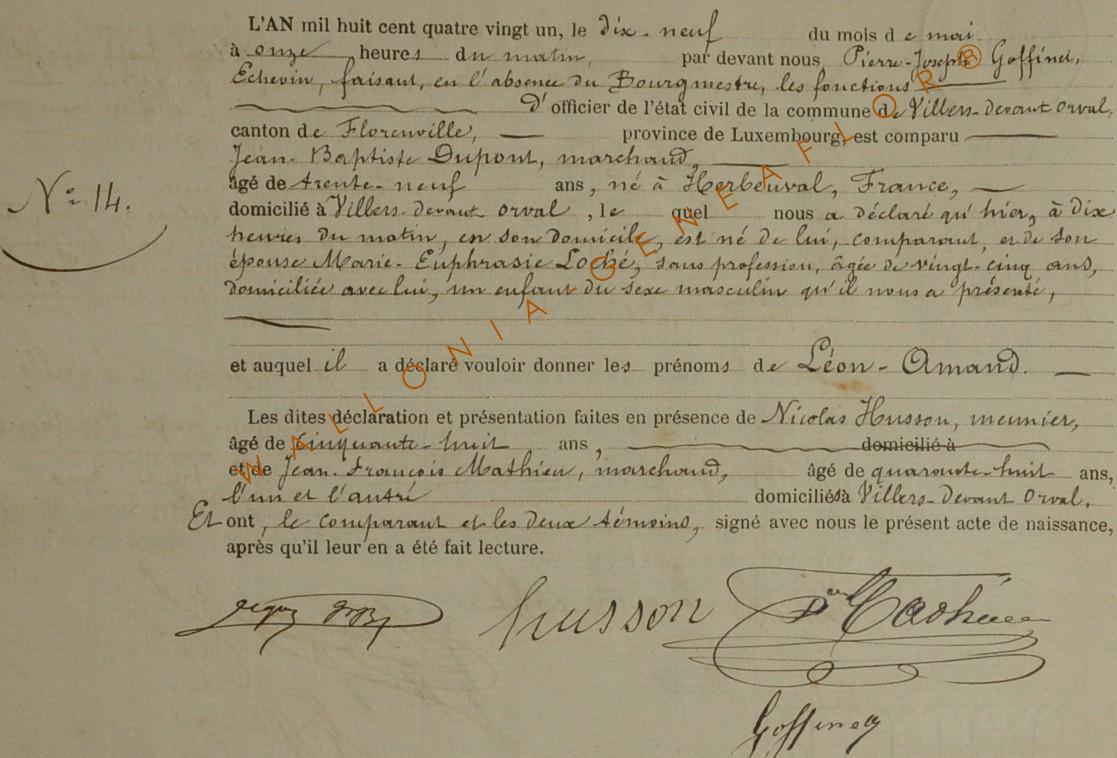 L'AN mil huit cent quatre vingt un, le dix-neuf du mois de mai
à onze heures du matin, par devant nous Pierre-Joseph Goffinet,
Echevin, faisant, en l'absence du Bourgmestre, les fonctions
d'officier de l'état civil de la commune de Villers-devant Orval,
canton de Florenville, province de Luxembourg, est comparu
Jean-Baptiste Dupont, marchand,
âgé de trente-neuf ans, né à Herbeuval, France,
domicilié à Villers-devant orval, le quel nous a déclaré qu'hier, à dix
heures du matin, en son domicile, est né de lui, comparant, et de son
épouse Marie-Euphrasie Loché, sans profession, âgée de vingt-cinq ans,
domiciliée avec lui, un enfant du sexe masculin qu'il nous a présenté,
N° 14.
et auquel il a déclaré vouloir donner les prénoms de Léon-Amand.
Les dites déclaration et présentation faites en présence de Nicolas Husson, meunier,
âgé de cinquante-huit ans, domicilié à
et de Jean-François Mathieu, marchand, âgé de quarante-huit ans,
l'un et l'autre domiciliés à Villers-devant Orval.
Et ont, le comparant et les deux témoins, signé avec nous le présent acte de naissance,
après qu'il leur en a été fait lecture.
Husson
Goffinet
WALLONIA GENEAFLOR®